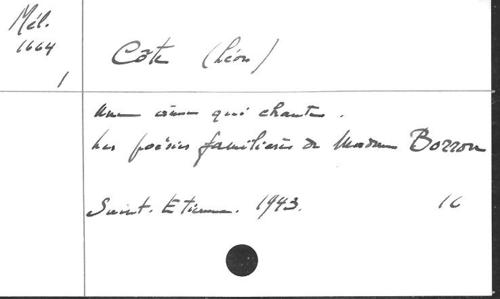 Mél.
1664
1
Côte (Léon)
Une âme qui chante.
Les poésies familières de Madame Borron
Saint-Etienne. 1943. 16